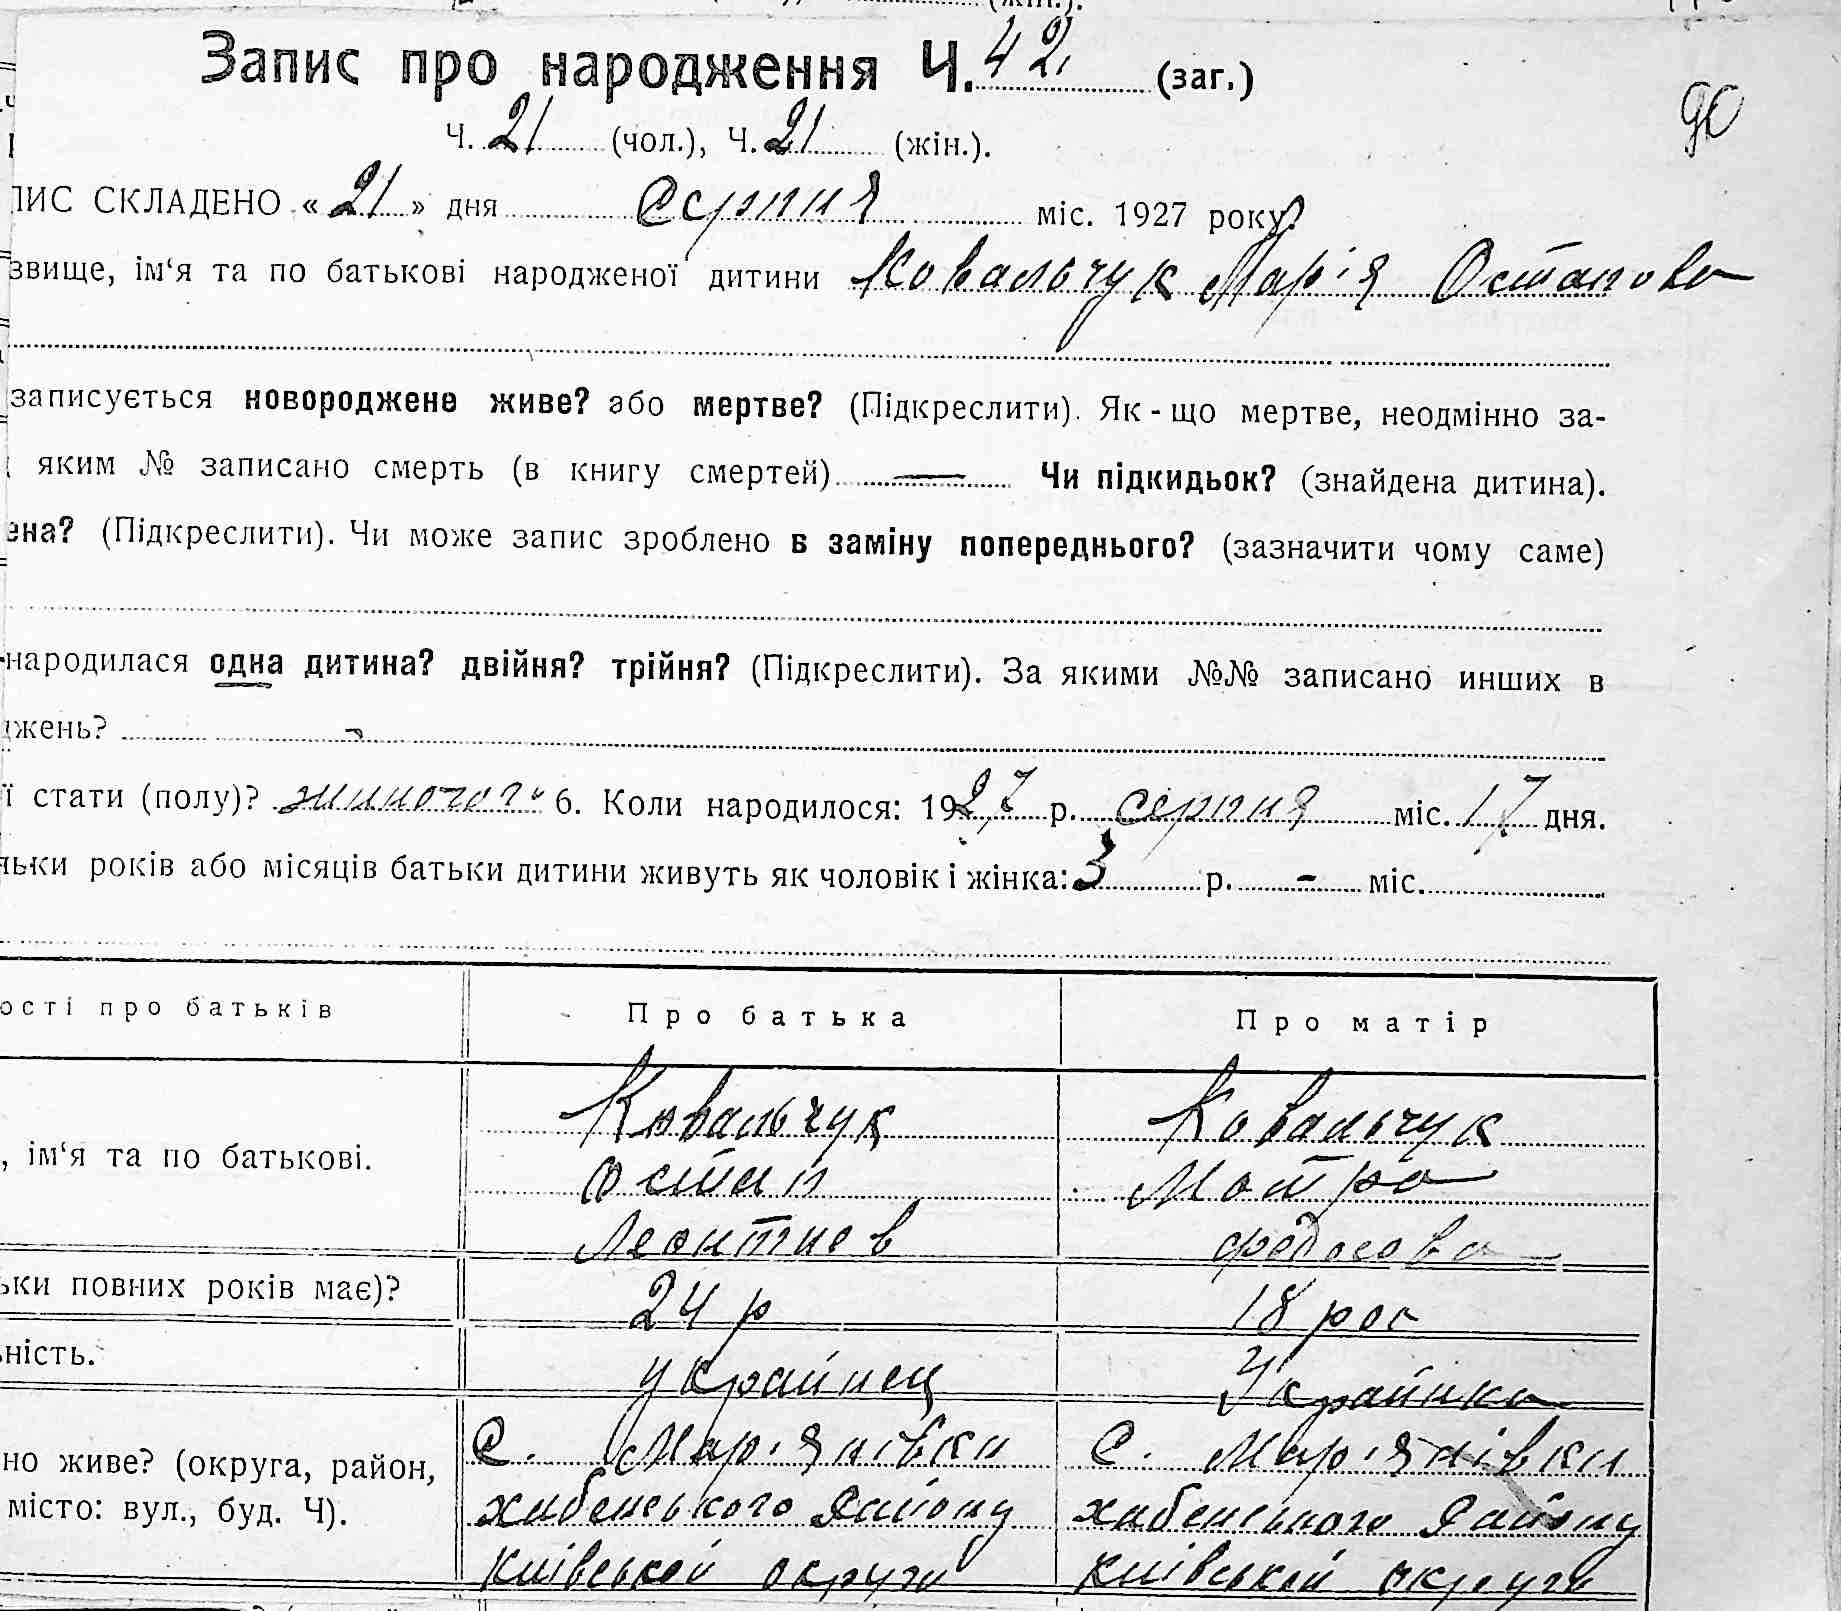 Запис про народження Ч. 42 (заг.)
90
Ч. 21 (чол.), Ч. 21 (жін.).
ПИС СКЛАДЕНО « 21 » дня Серпня міс. 1927 року
звище, ім‘я та по батькові народженої дитини Ковальчук Марія Остапова
записується новороджене живе? або мертве? (Підкреслити). Як-що мертве, неодмінно за-
яким № записано смерть (в книгу смертей) — Чи підкидьок? (знайдена дитина).
ена? (Підкреслити). Чи може запис зроблено в заміну попереднього? (зазначити чому саме)
народилася одна дитина? двійня? трійня? (Підкреслити). За якими №№ записано инших в
джень?
ї стати (полу)? жиночого 6. Коли народилося: 1927 р. серпня міс. 17 дня.
льки років або місяців батьки дитини живуть як чоловік і жінка: 3 р. - міс.
ості про батьків Про батька Про матір
Ковальчук Ковальчук
, ім‘я та по батькові. Остап Мотра
Леонтиев Федосова
ьки повних років має)? 24 р 18 рос
ьність. українец Українка
С. Мар'янівки С. Мар'янівки
но живе? (округа, район, хабенського Району хабенського Району
місто: вул., буд. Ч). Київськой округи Київськой округи